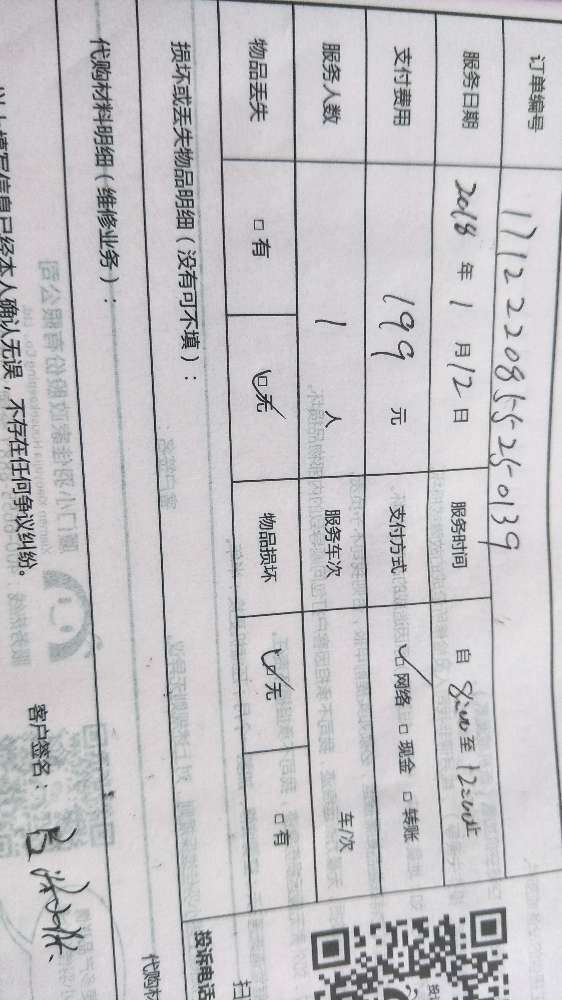 订单编号 1712220855250139
服务日期 2018年1月12日 服务时间 自8:00至12:00止
支付费用 199元 支付方式 □网络 □现金 □转账
服务人数 1人 服务车次 车/次
物品丢失 □有 □无 物品损坏 □无 □有
损坏或丢失物品明细（没有可不填）：
代购材料明细（维修业务）：
以上填写信息已经本人确认无误，不存在任何争议纠纷。
客户签名：
投诉电话
扫
代购材